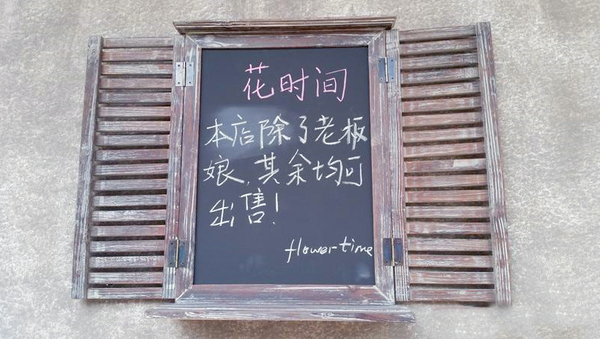 花时间
本店除了老板
娘,其余均可
出售!
flower time